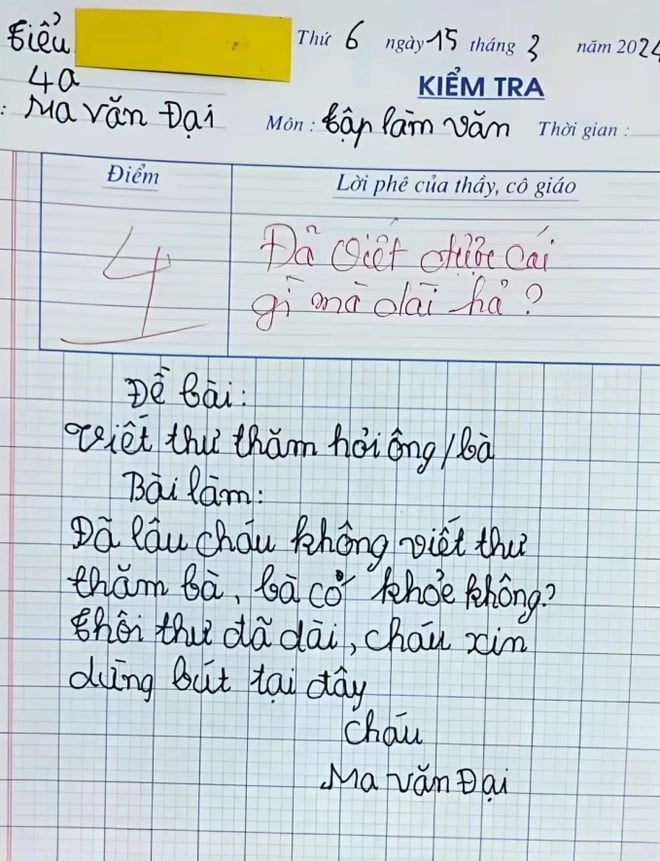 Tiểu
Thứ 6 ngày 15 tháng 3 năm 2024
4a
KIỂM TRA
: Ma văn Đại
Môn : Tập làm văn Thời gian :
Điểm
Lời phê của thầy, cô giáo
4
Đã viết được cái
gì mà dài hả?
Đề bài:
Viết thư thăm hỏi ông/bà
Bài làm:
Đã lâu cháu không viết thư
thăm bà, bà có khỏe không?
Thôi thư đã dài, cháu xin
dừng bút tại đây
Cháu
Ma văn Đại